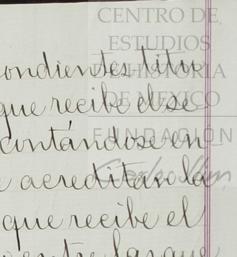 CENTRO DE
ESTUDIOS
DE HISTORIA
DE MÉXICO
FUNDACIÓN
ondientes titu
que recibe el se
contándose en
acreditan la
que recibe el